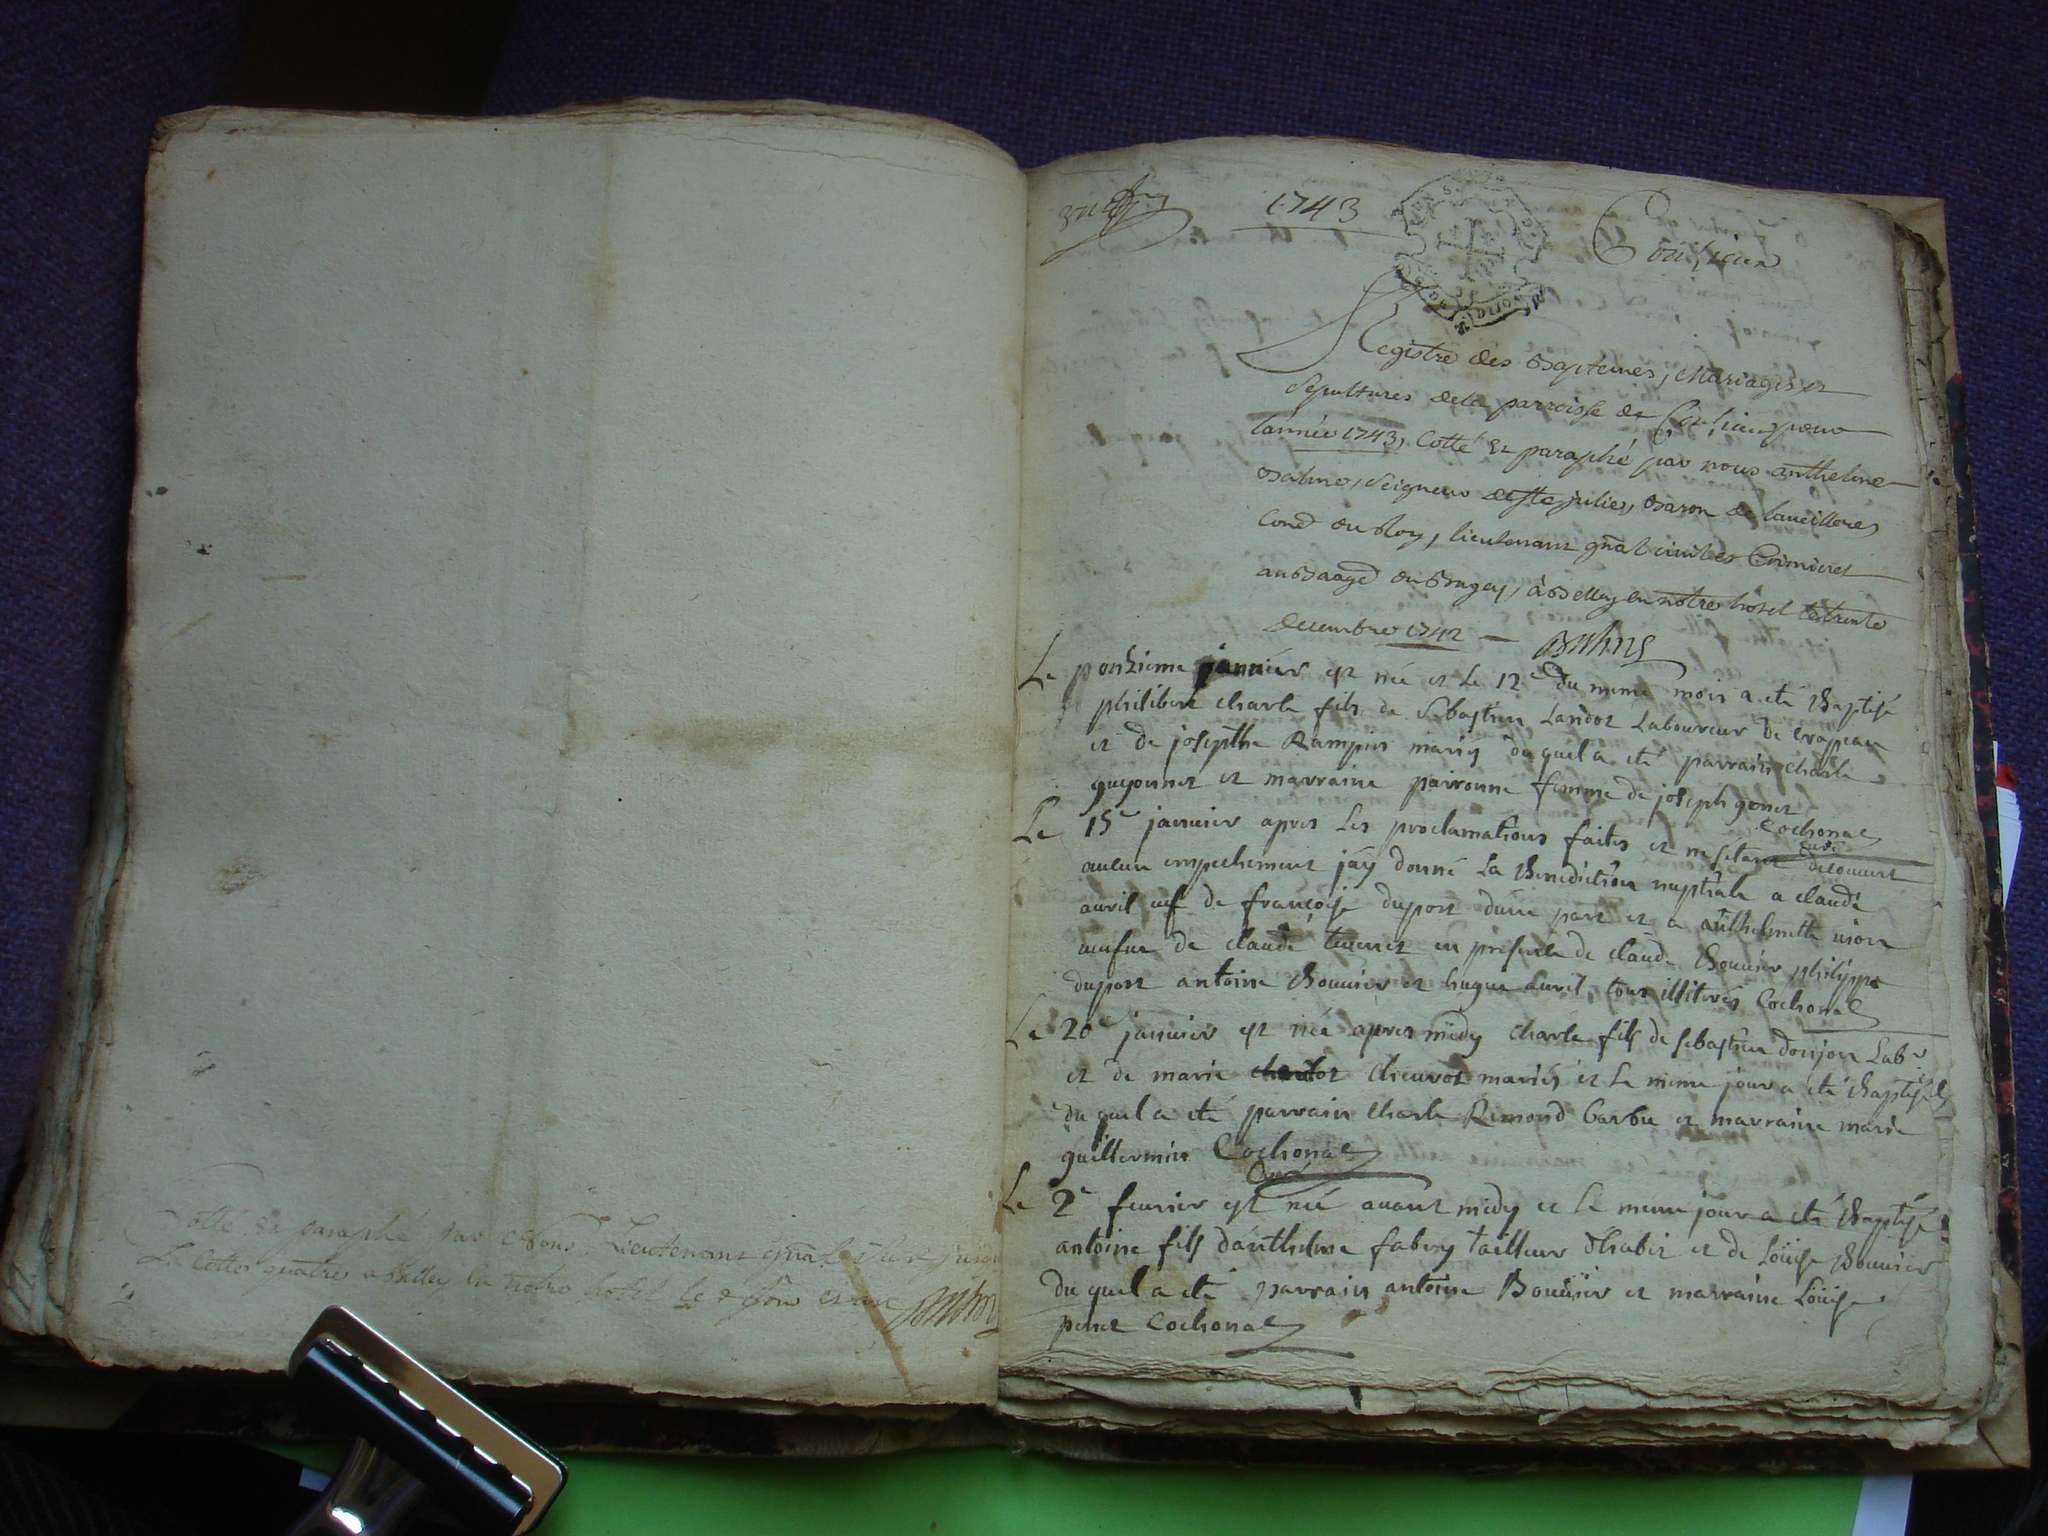 Cotté et paraphé par Nous Lieutenant gñal
La cotte quatre a Belley en notre hotel le
1743
Registre des Baptemes, Mariages et
Sepultures de la parroisse de pour
lannée 1743, Cotté et paraphé par nous anthelme
Balme, Seigneur de Ste julie, Baron de
Cons du Roy, lieutenant gñal civil et Criminel
au Baage du Bugey, à Belley en notre hotel le trente
Decembre 1742 — Balme
Le janvier est née et le 12e du meme mois a eté Baptisé
philibert charle fils de Sebastien Landot Laboureur de
et de josepthe Rampin mariés duquel a eté parrain charle
guyonnet et marraine pairoune femme de joseph gonet
Cochonat
curé
Le 15e janvier apres les proclamations faites et ne setant decouvert
aucun empechement jáy donné la Benediction nuptiale a claude
avril vef de françoise duport dune part et a anthelmette
veufue de claude en presence de claude Bouvier philippe
duport antoine Bouvier et hugue Avril, tous illiterés Cochonat
Le 20e janvier est née apres midy charle fils de sebastien donjon Labr
et de marie mariés et le meme jour a eté Baptisé
du quel a eté parrain charle Remond Barbu et marraine marie
guillermin Cochonat
Curé
Le 2e fevrier est née avant midy et le meme jour a eté Baptisé
antoine fils dánthelme fabry tailleur dhabit et de Loüise Bouvier
du quel a eté parrain antoine Bouüier et marraine Loüise
Cochonat